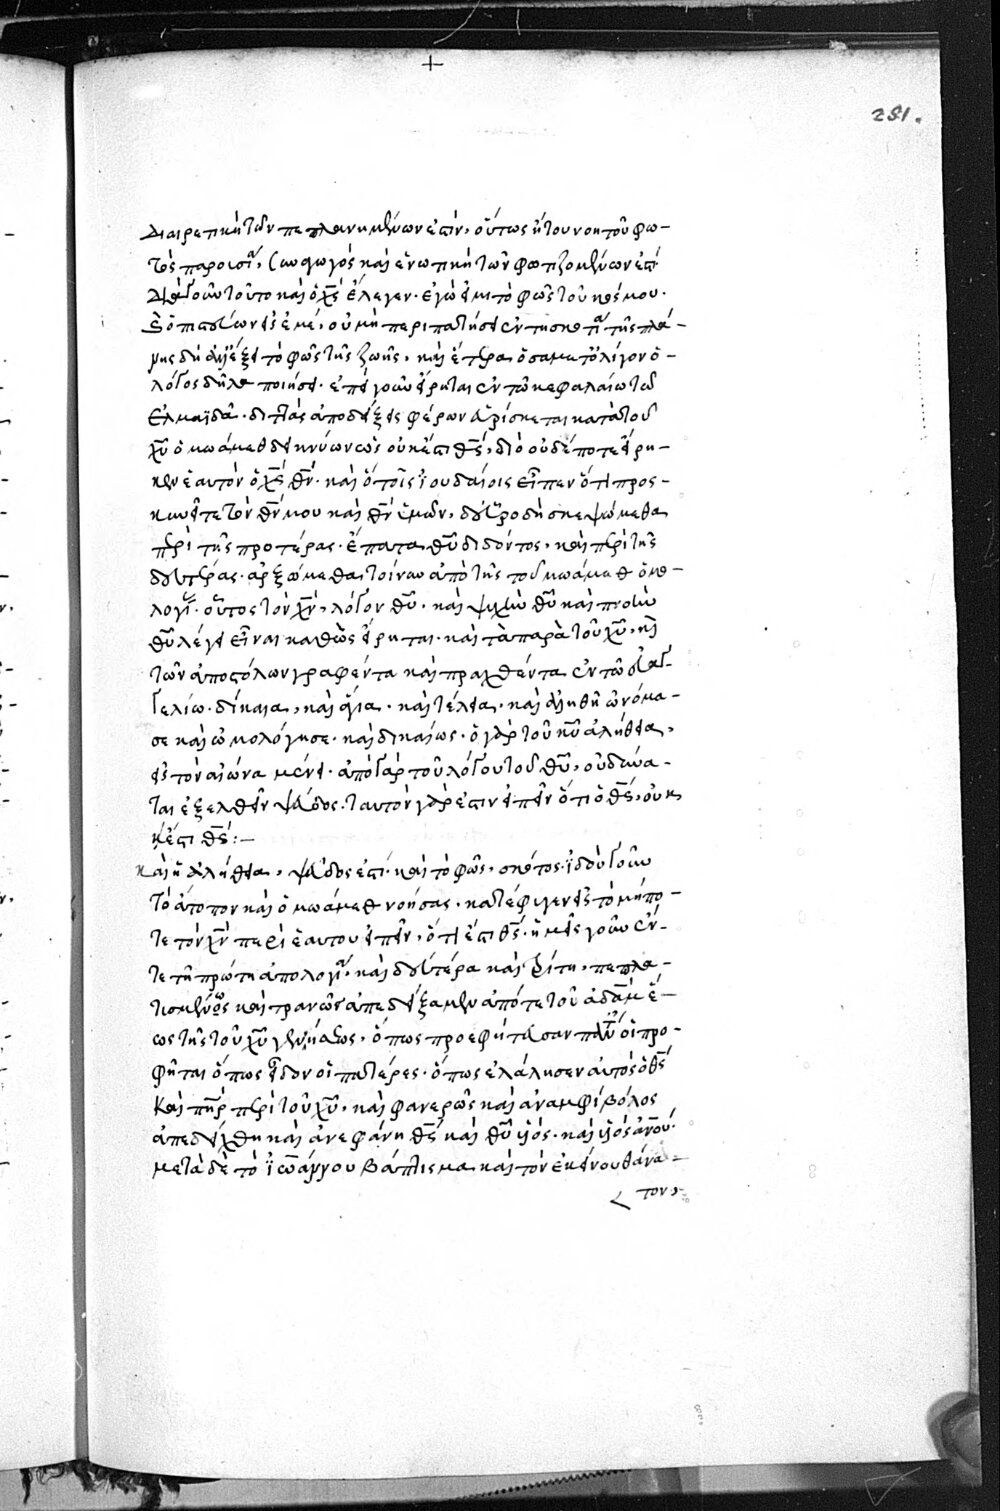 281.
διαιρετικὴ τῶν πεπλανημένων ἐστίν, οὕτως ἡ τοῦ νοητοῦ φω-
τὸς παρουσία, συναγωγὸς καὶ ἑνωτικὴ τῶν φωτιζομένων ἐστί
διὰ γοῦν τοῦτο καὶ ὁ χς̅ ἔλεγεν· ἐγὼ εἰμι τὸ φῶς τοῦ κόσμου·
ὁ πιστεύων εἰς ἐμέ, οὐ μὴ περιπατήσει ἐν τῇ σκοτίᾳ τῆς πλά-
νης ἀλλ' ἕξει τὸ φῶς τῆς ζωῆς, καὶ ἕτερα ὅσα μετ' ὀλίγον ὁ
λόγος δῆλα ποιήσει· ἐπεὶ γοῦν εἴρηται ἐν τῷ κεφαλαίῳ τῷ
ἐλμαϊδᾶ· διττὰς ἀποδείξεις φέρων εὑρίσκεται κατὰ τοῦ
χυ̅ ὁ μωάμεθ δεικνύων ὡς οὐκ ἔστι θς̅, διὸ οὐδέποτε εἴρη-
κεν ἑαυτὸν ὁ χς̅ θν̅· καὶ ὅτι τοῖς ἰουδαίοις εἶπεν ὅτι προσ-
κυνεῖτε τὸν θν̅ μου καὶ θν̅ ὑμῶν, δεῦρο δὴ σκεψώμεθα
περὶ τῆς προτέρας· ἔπειτα θυ̅ διδόντος, καὶ περὶ τῆς
δευτέρας· ἀρξώμεθα τοίνυν ἀπὸ τῆς τοῦ μωάμεθ ὁμο-
λογίας· οὗτος τὸν χν̅, λόγον θυ̅· καὶ ψυχὴν θυ̅ καὶ πνοὴν
θυ̅ λέγει εἶναι καθὼς εἴρηται· καὶ τὰ παρὰ τοῦ χυ̅, καὶ
τῶν ἀποστόλων γραφέντα καὶ πραχθέντα ἐν τῷ εὐαγ-
γελίῳ· δίκαια, καὶ ἅγια· καὶ τέλεια· καὶ ἀληθῆ ὠνόμα-
σε καὶ ὡμολόγησε· καὶ δικαίως· ὁ γὰρ τοῦ κυ̅ ἀλήθεια,
εἰς τὸν αἰῶνα μένει· ἀπὸ γὰρ τοῦ λόγου τοῦ θυ̅, οὐ δύνα-
ται ἐξελθεῖν ψεῦδος· ταυτὸν γάρ ἐστιν εἰπεῖν ὅτι ὁ θς̅, οὐκ
ἔστι θς̅:-
καὶ ἡ ἀλήθεια, ψεῦδος ἐστί· καὶ τὸ φῶς, σκότος· ἰδοὺ γοῦν
τὸ ἄτοπον καὶ ὁ μωάμεθ νοήσας· κατέφυγεν εἰς τὸ μήπο-
τε τὸν χν̅ περὶ ἑαυτοῦ εἰπεῖν, ὅτι ἔστι θς̅· ἡμεῖς γοῦν ἔν-
τε τῇ πρώτῃ ἀπολογίᾳ, καὶ δευτέρᾳ καὶ τρίτῃ, πεπλα-
τυσμένως καὶ τρανῶς ἀπεδείξαμεν ἀπό τε τοῦ ἀδὰμ ἕ-
ως τῆς τοῦ χυ̅ γεννήσεως, ὅπως προεφήτευσαν πάντες οἱ προ-
φῆται ὅπως εἶδον οἱ πατέρες· ὅπως ἐλάλησεν αὐτὸς ὁ θς̅
καὶ πηρ̅ περὶ τοῦ χυ̅, καὶ φανερῶς καὶ ἀναμφιβόλως
ἀπεδείχθη καὶ ἀνεφάνη θς̅ καὶ θυ̅ υἱός· καὶ υἱὸς ἀνου̅·
μετὰ δὲ τὸ ἰωάννου βάπτισμα καὶ τὸν ἐκείνου θάνα-
τον,